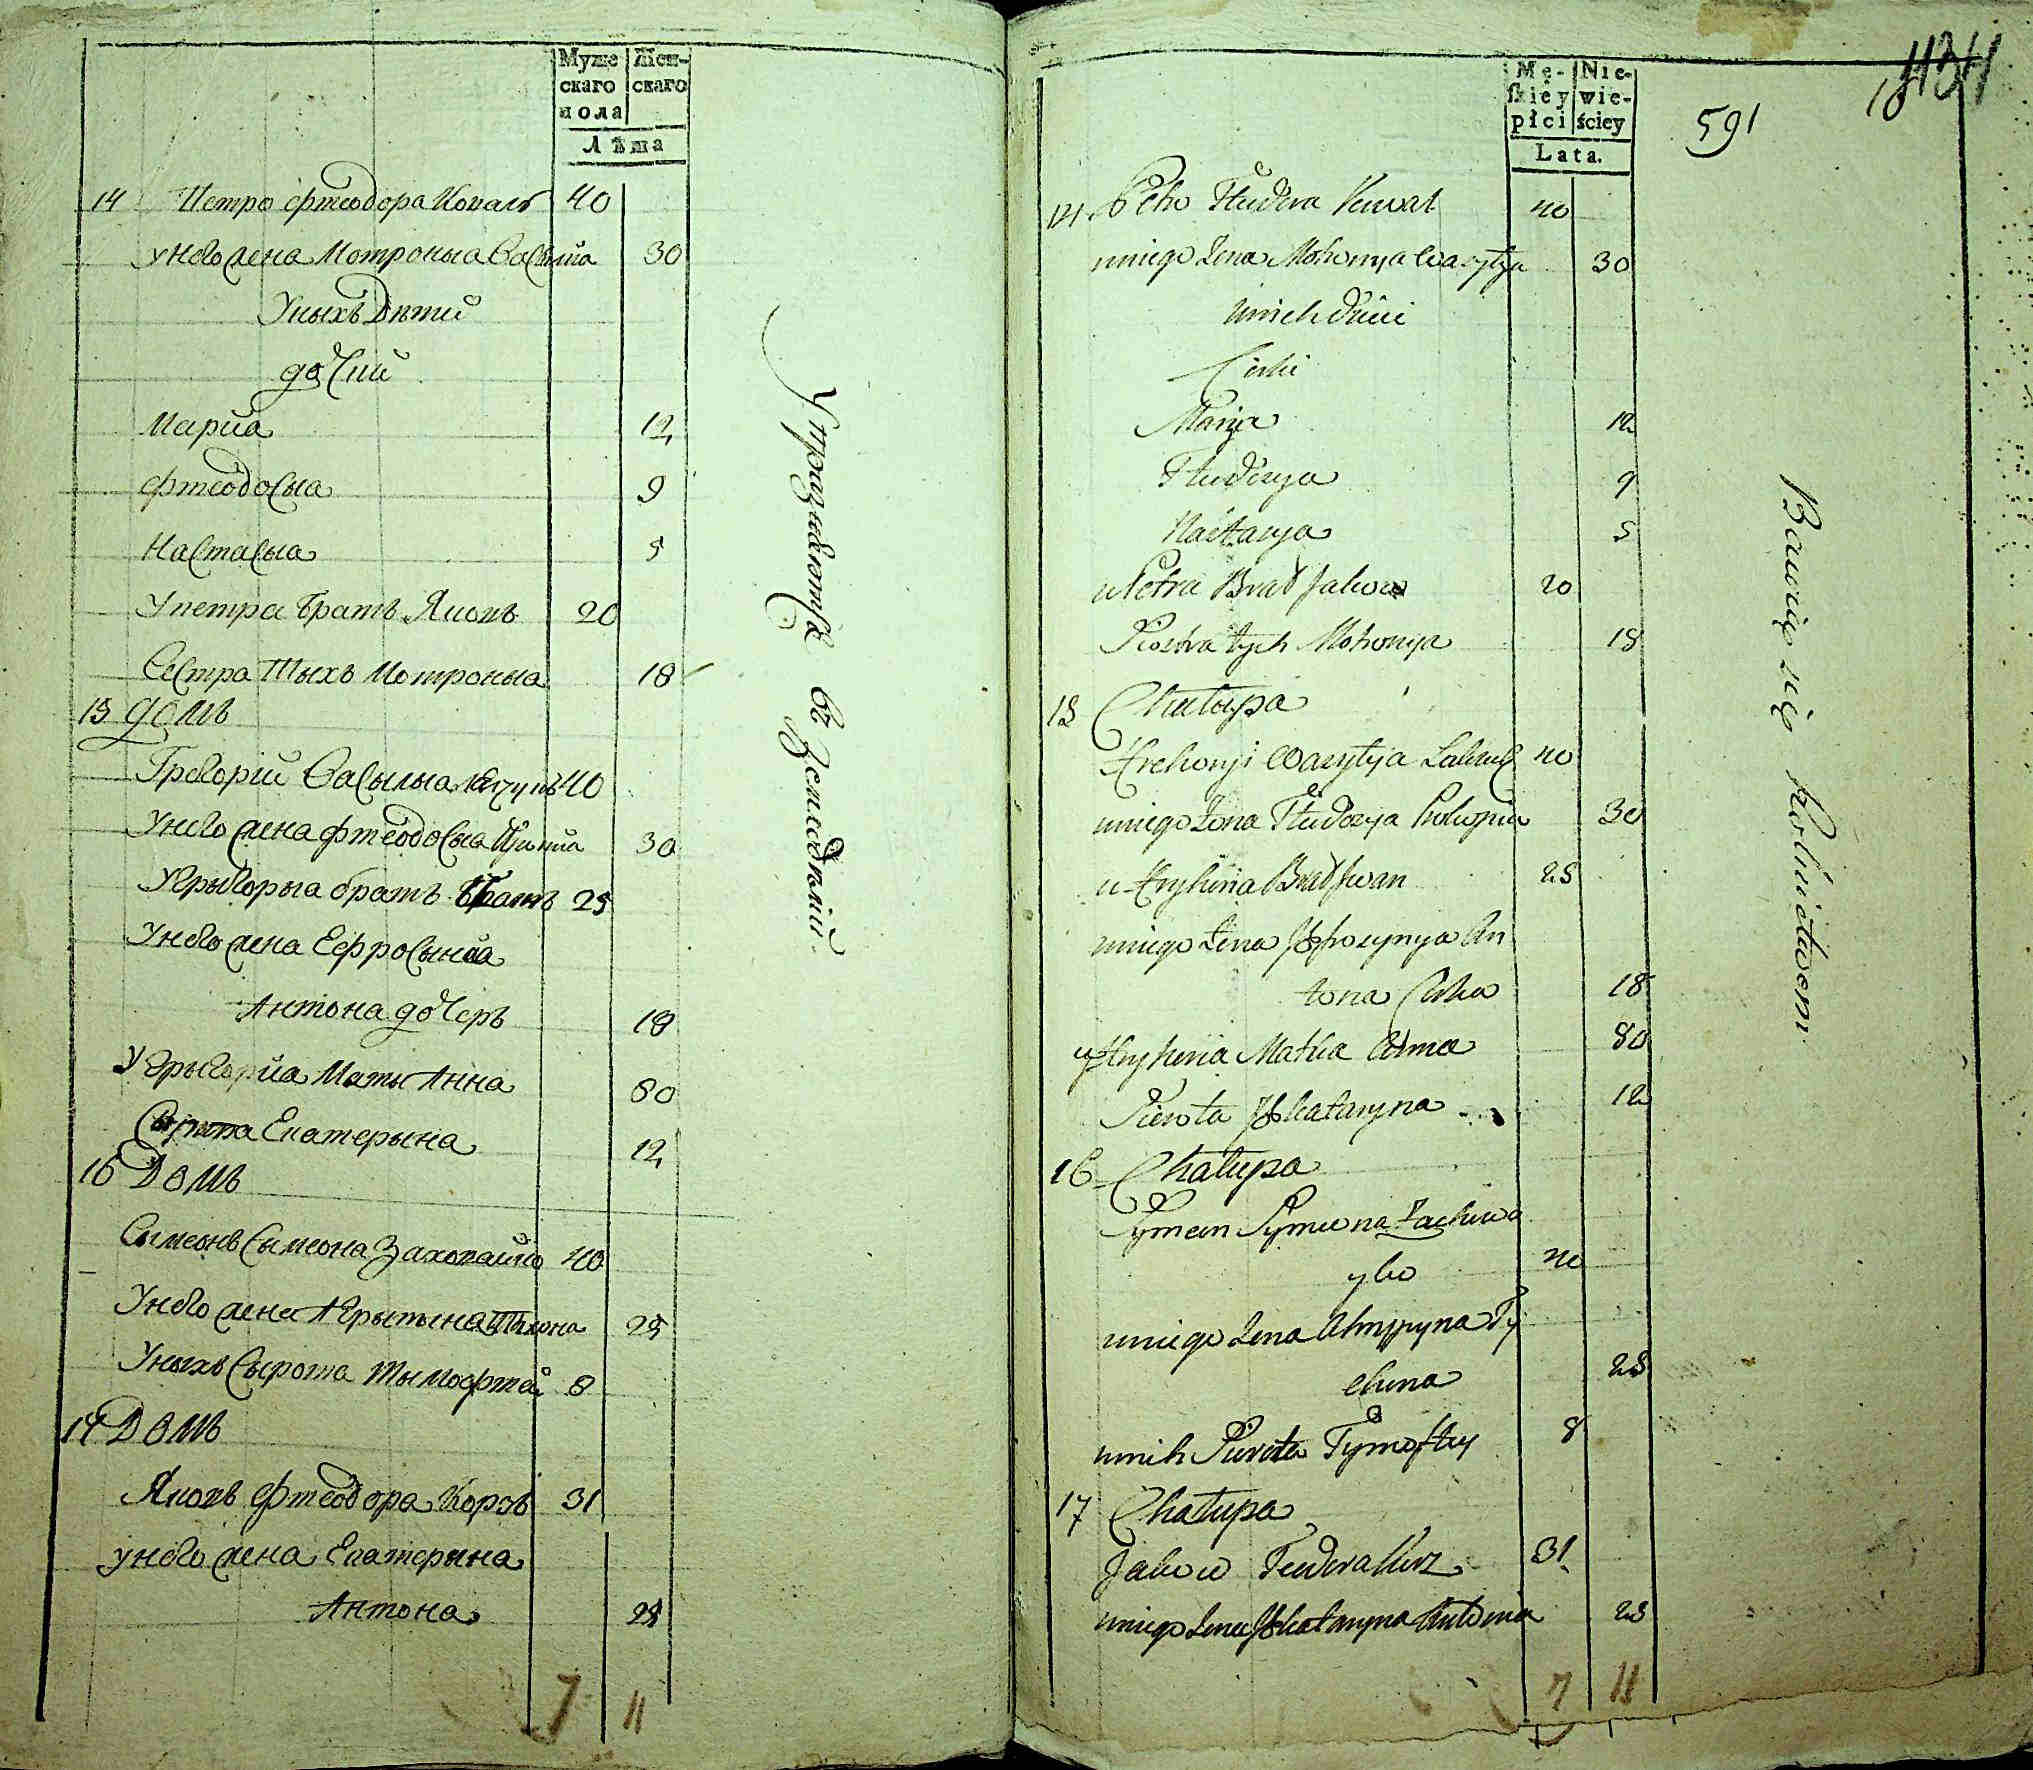 Муже Жен-
скаго скаго
пола
Лѣта
14 Петро Фтеодора Коваль 40
у него жена Мотроныа Васылыа 30
У ныхъ Дѣтий
дочки
Марйа 12
Фтеодосыа 9
Настасыа 5
У петра братъ Яковъ 20
Сестра Тыхъ Мотроныа 18
15 домъ
Грегорій Васылыа 40
У него жена Фтеодосыа 30
У Грыгорыа братъ 25
У него жена Ефросынйа
Антона дочеръ 18
У Грыгорйа Маты Анна 80
Сырота Екатерына 12
16 Домъ
Сымеонъ Сымеона Захопайло 40
У него жена Агрыпына Тыхона 25
У ныхъ Сырота Тымофтей 8
17 Домъ
Яковъ Фтеодора Корзъ 31
у него жена Екатерына
Антона 25
7 11
Упражняются въ Земледѣлій
Mę- Nie-
skiey wie-
płci ściey
Lata.
591
434
14 Petro Fteudora Kowal 40
u niego Żona Motronya Wasylya 30
u nich dzieci
Córki
Marya 12
Fteudozya 9
Nastazya 5
u Petra Brat Jakow 20
Siostra tych Motronya 18
15 Chałupa
Hrehory Wasylya 40
u niego Żona Fteudozya Prokopia 30
u Hryhoria Brat Iwan 25
u niego Żona Jefrozynya An
tona Córka 18
u Hryhoria Matka Anna 80
Sierota Jekataryna 12
16 Chałupa
Symeon Symeona Zachowa
yło 40
u niego Żona Ahrypyna Ty
chona 25
u nich Sierota Tymoftey 8
17 Chałupa
Jakow Feudora Korz 31
u niego Żona Jekataryna Antonia 25
7 11
Bawią się Rolnictwem